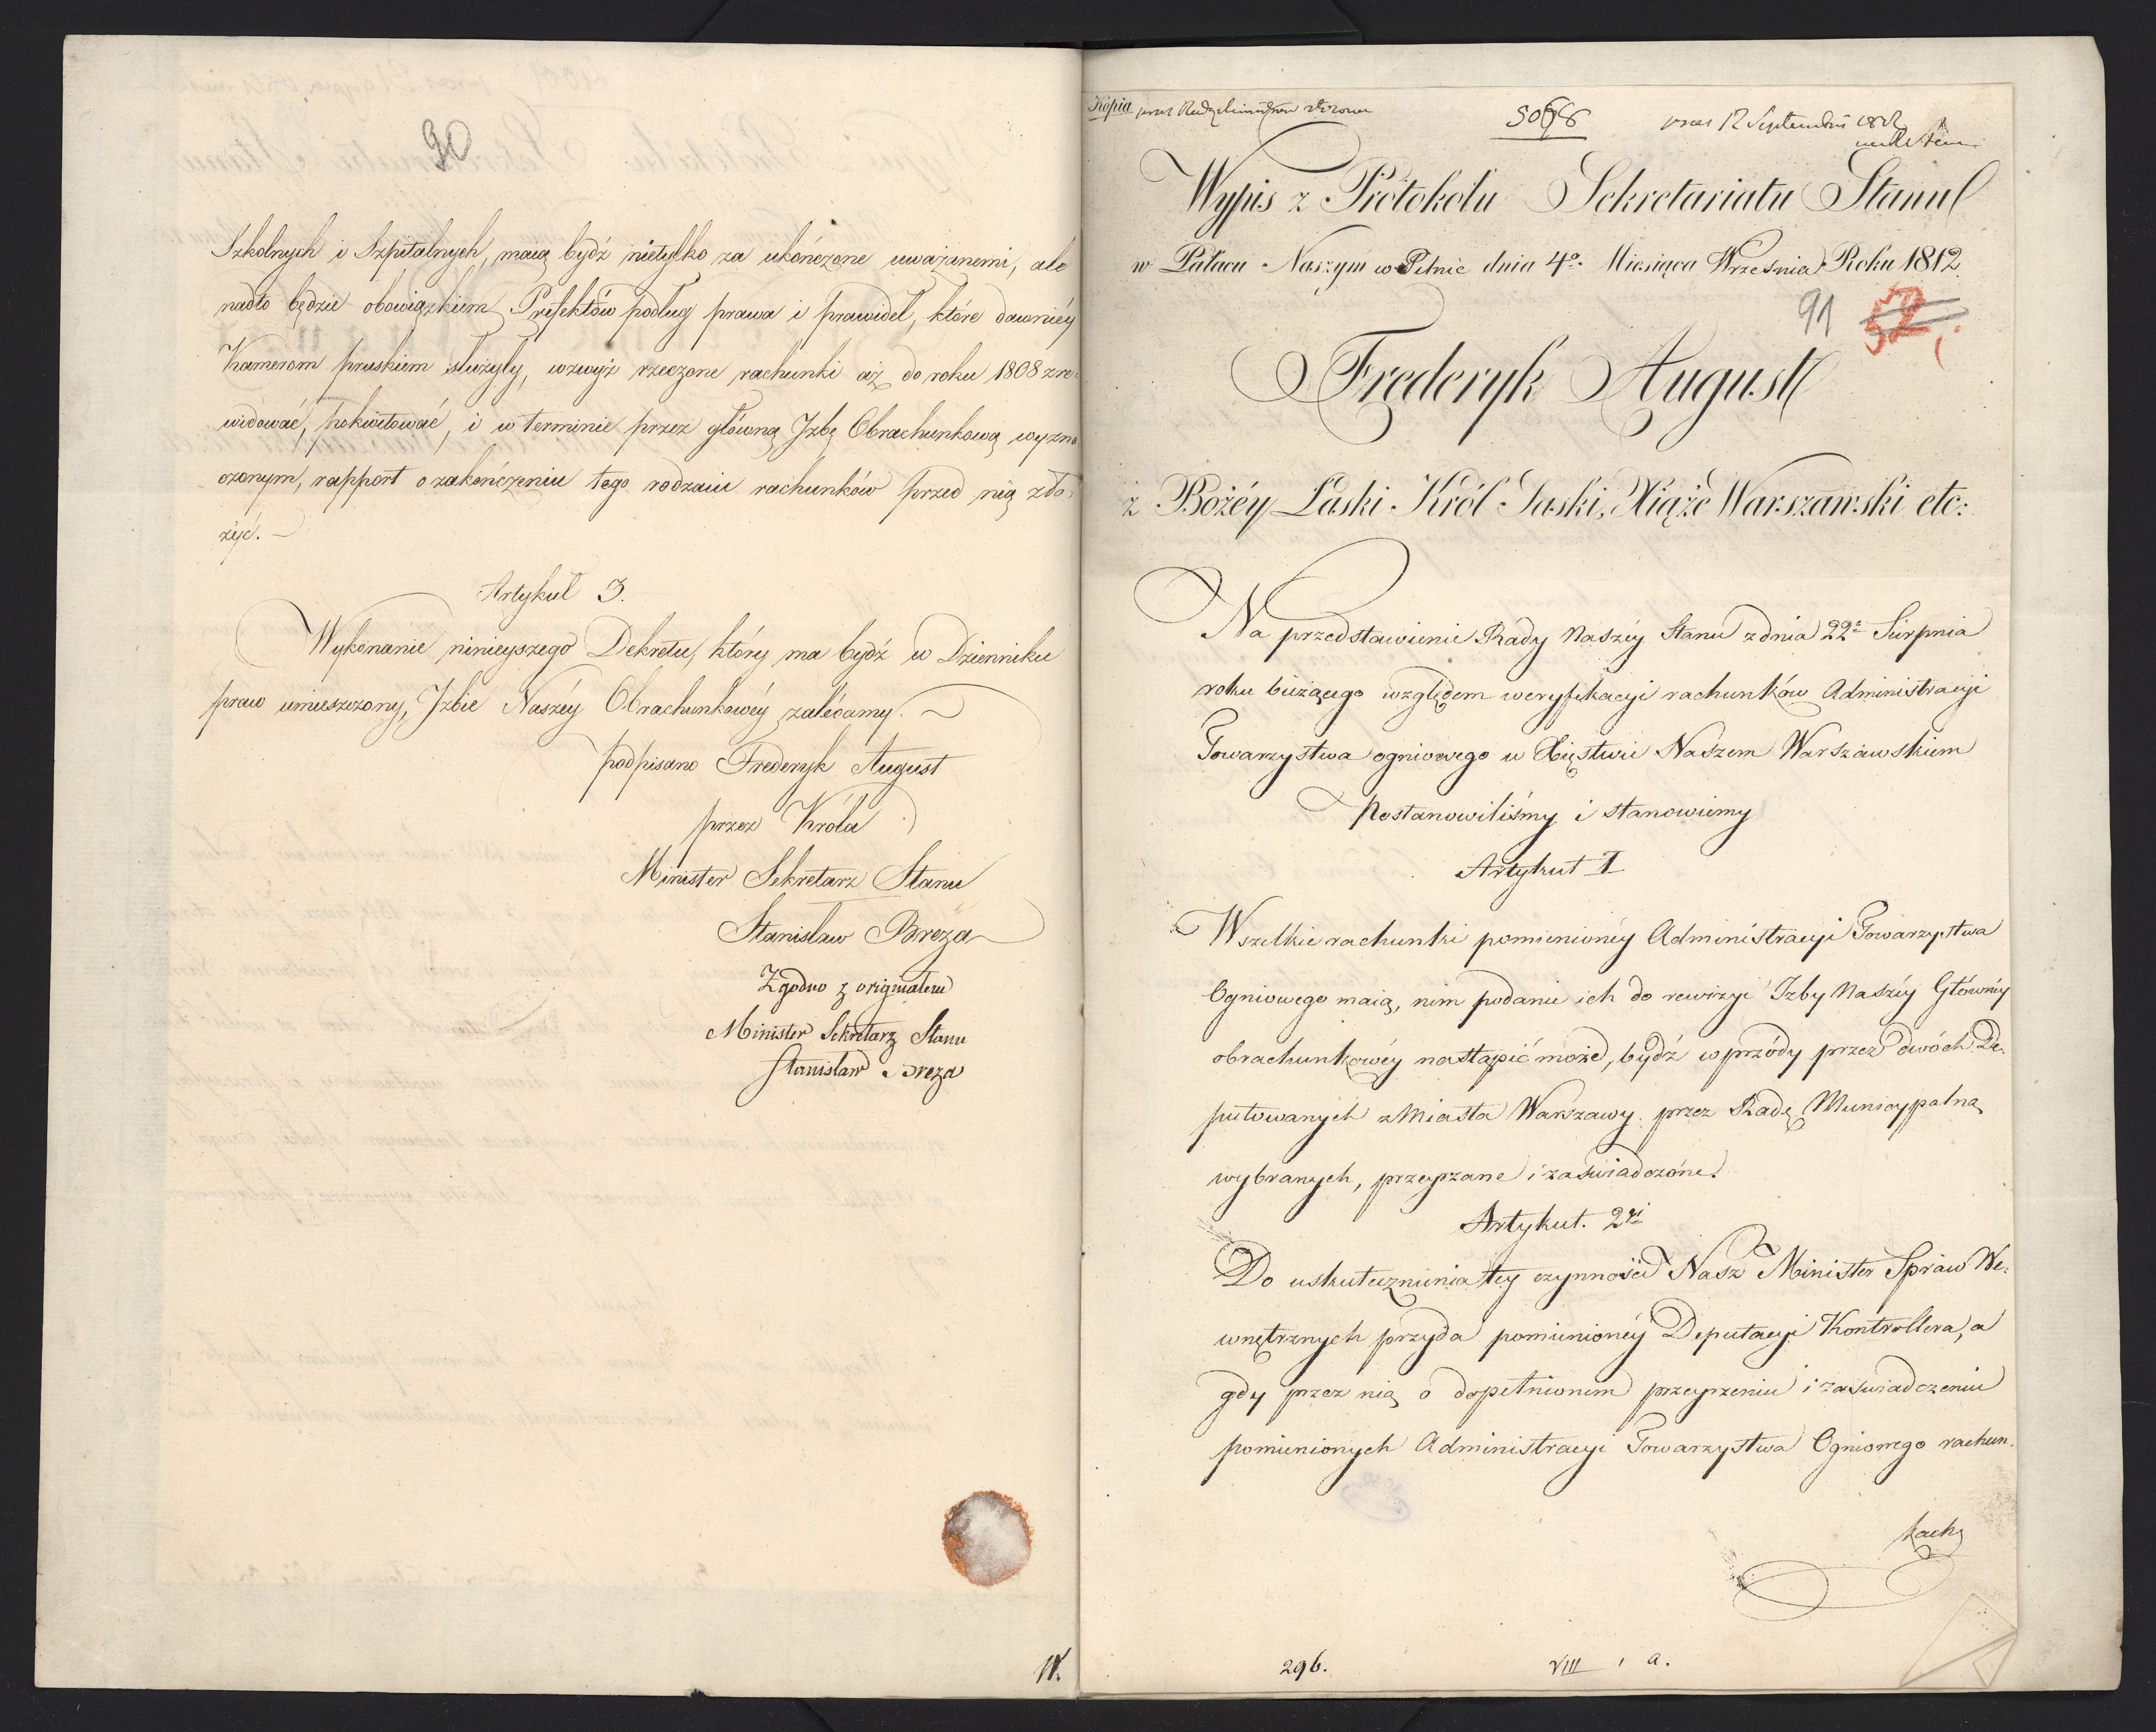 90
Szkolnych i Szpitalnych, maią bydź nietylko za ukończone uważanemi, ale
nadto będzie obowiązkiem Prefektów podług prawa i prawideł, które dawniéy
Kamerom pruskiem służyły, wzwyż rzeczone rachunki aż do roku 1808 zre-
widować, pokwitować, i w terminie przez główną Jzbę Obrachunkową wyzna
czonym, rapport o zakończeniu tego rodzaiu rachunków przed nią zło-
żyć. —
Artykuł 3.
Wykonanie ninieyszego Dekretu, który ma bydź w Dzienniku
praw umieszczony, Jzbie Naszéy Obrachunkowéy zalécamy. —
podpisano Frederyk August
przez Króla
Minister Sekretarz Stanu
Stanisław Breza
Zgodno z originałem
Minister Sekretarz Stanu
Stanisław Breza
Kopia
5068
12 Septembris 1812
Wypis z Protokołu Sekretariatu Stanu
w Pałacu Naszym w Pilnic dnia 4º Miesiąca Września Roku 1812.
91 52
Frederyk August
z Bożéy Łaski Król Saski, Xiąże Warszawski etc:
Na przedstawienie Rady Naszéy Stanu z dnia 22º Sierpnia
roku bieżącego względem weryfikacyi rachunków Administracyi
Towarzystwa ogniowego w Xięstwie Naszem Warszawskiem
Postanowiliśmy i stanowiemy
Artykuł I
Wszelkie rachunki pomienionéy Administracyi Towarzystwa
Ogniowego maią, nim podanie ich do rewizyi Izby Naszéy Głównéy
obrachunkowéy nastąpić może, bydź wprzódy przez dwóch De-
putowanych z Miasta Warszawy przez Radę Municypalną
wybranych, przeyrzane i zaświadczone.
Artykuł. 2gi
Do uskutecznienia tey czynności Nasz Minister Spraw We-
wnętrznych przyda pomienionéy Deputacyi Kontrollera, a
gdy przez nią o dopełnionem przeyrzeniu i zaświadczeniu
pomienionych Administracyi Towarzystwa Ogniowego rachun-
296. VIII 1 a.